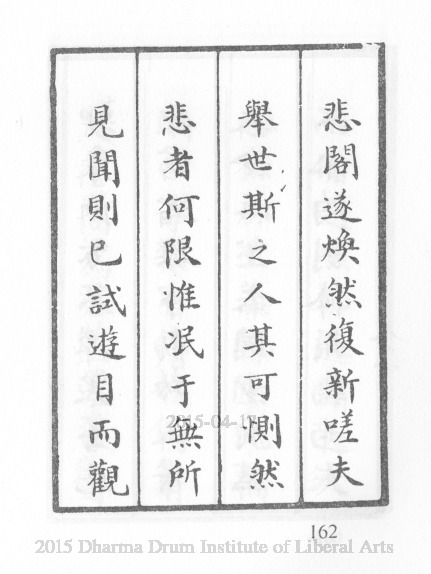 悲閣遂煥然復新嗟夫
舉世斯之人其可惻然
悲者何限惟冺于無所
見聞則已試遊目而觀
2015-04-17
162
2015 Dharma Drum Institute of Liberal Arts